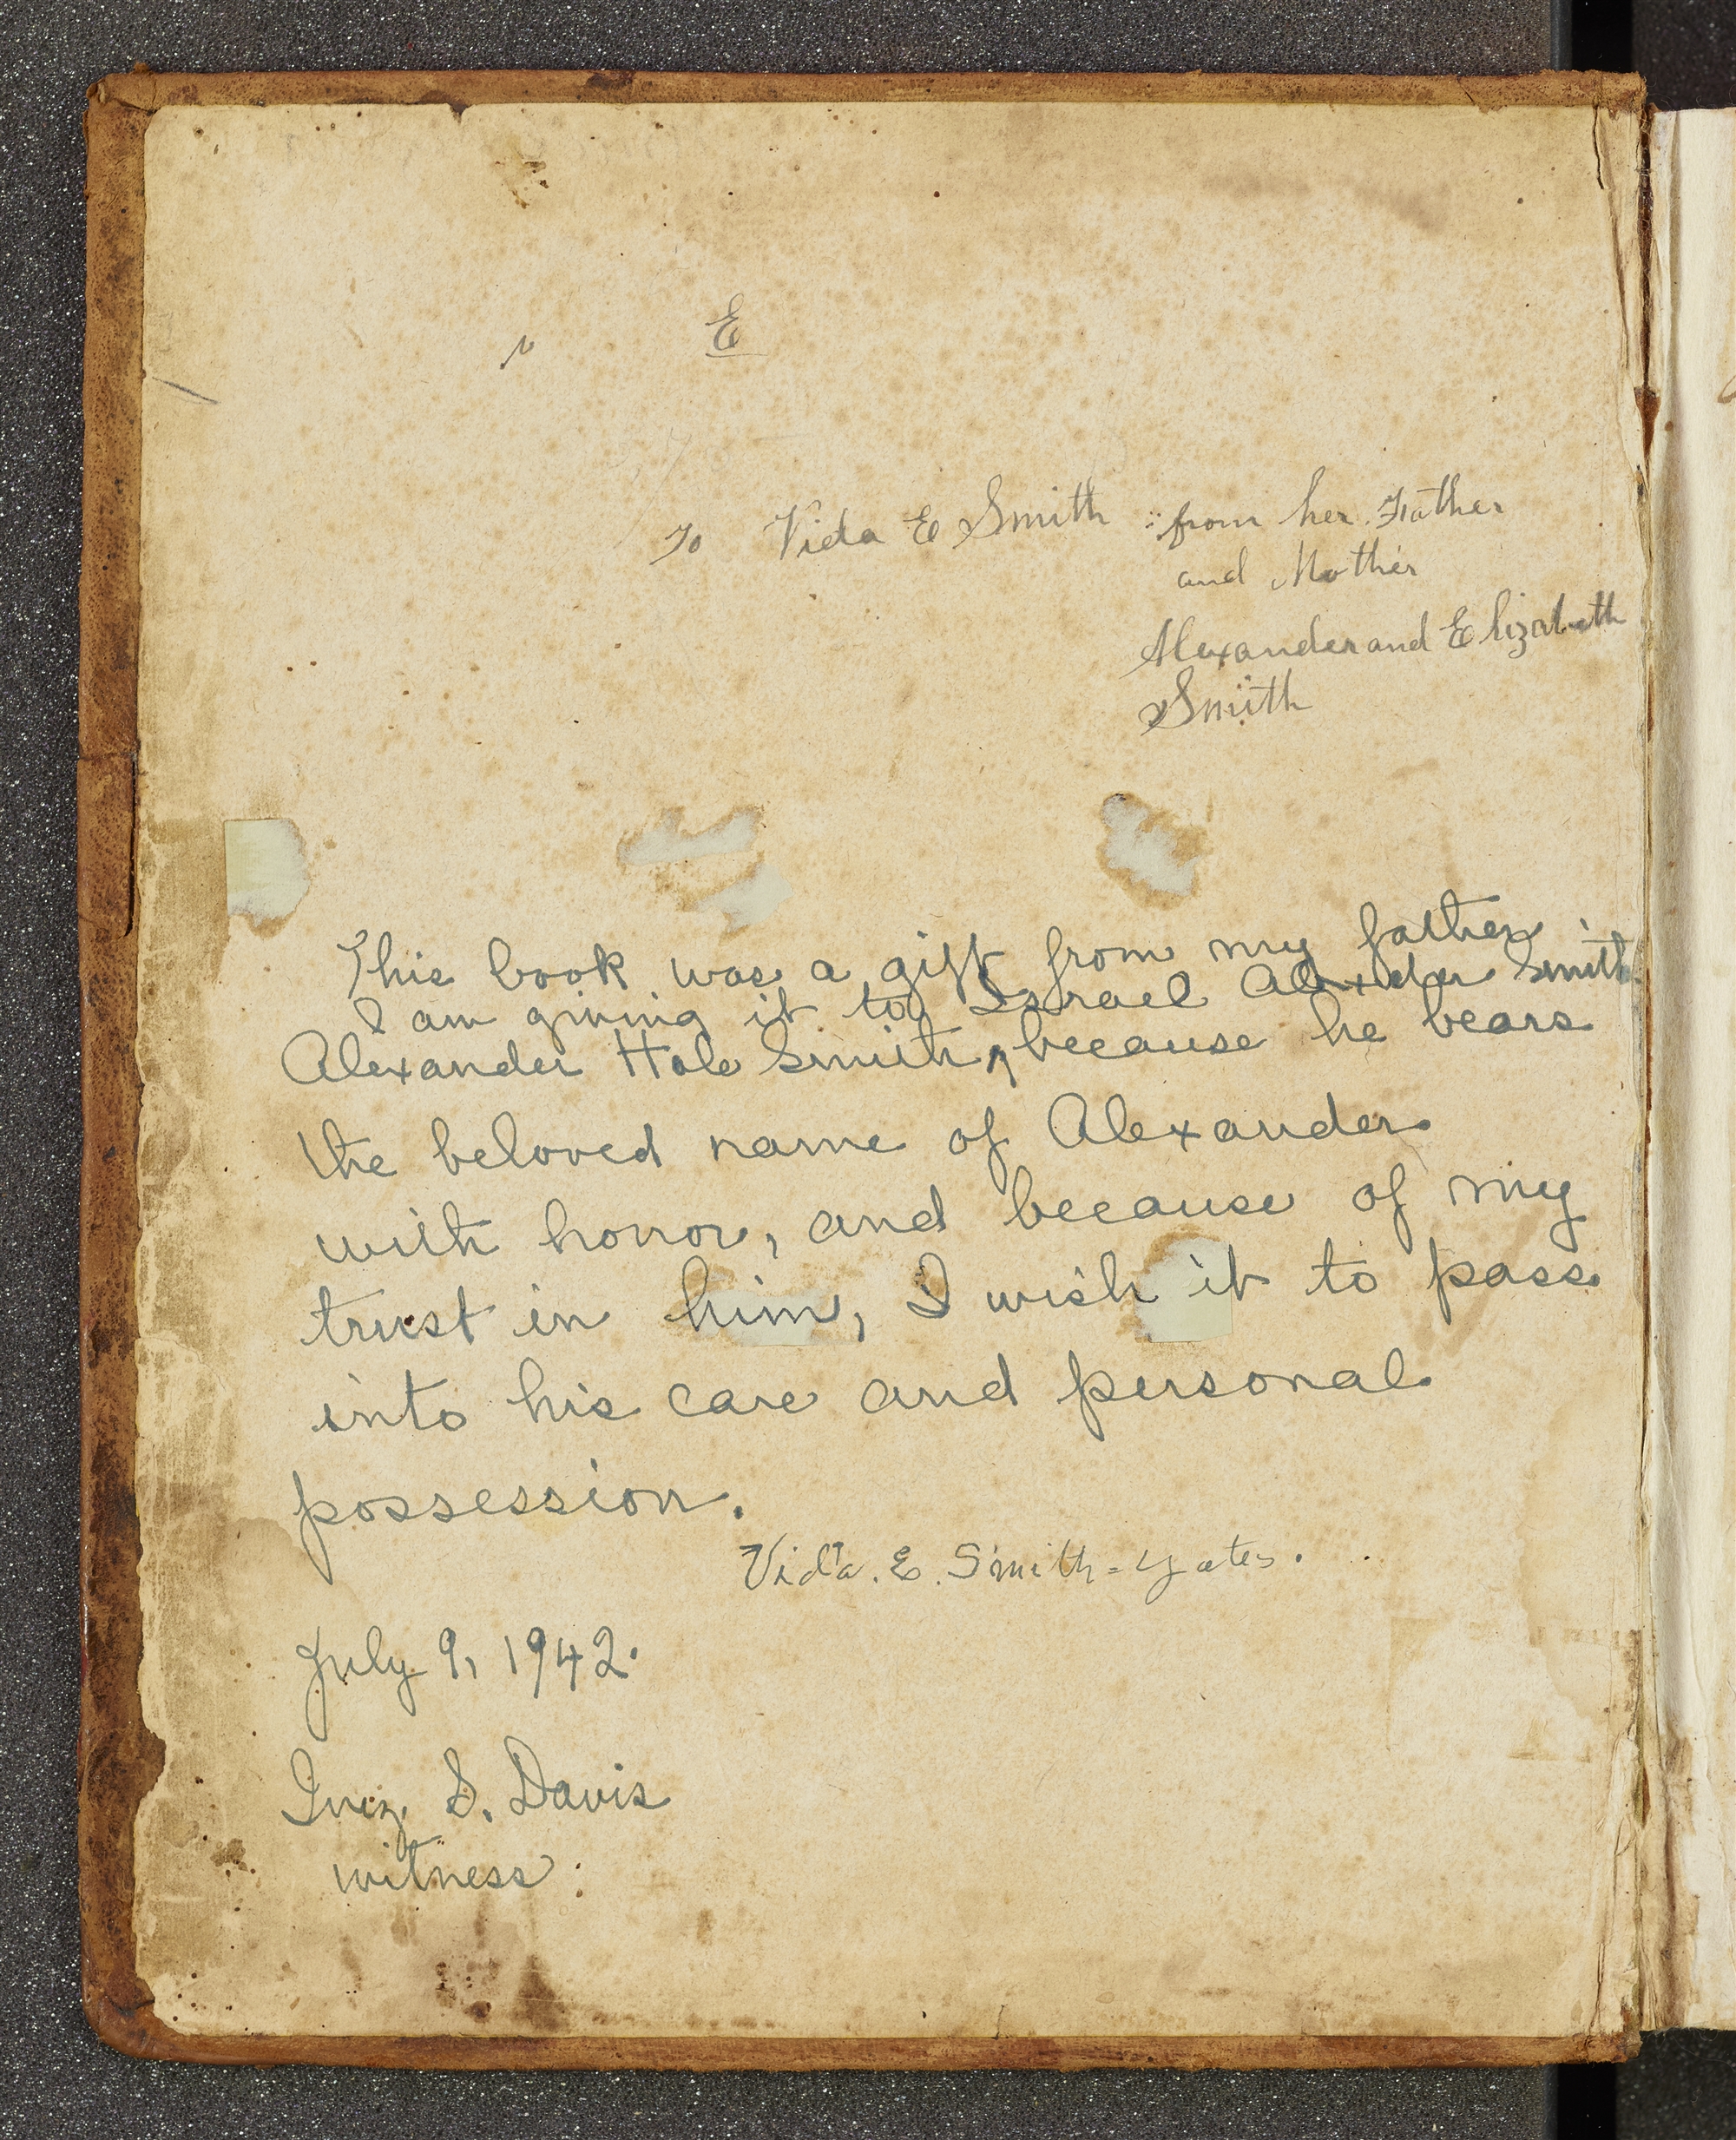 E
To Vida E Smith from her Father
and Mother
Alexander and Elizabeth
Smith
This book was a gift from my father
I am giving it to Israel Alexander Smith
Alexander Hale Smith, ^ because he bears
the beloved name of Alexander
with honor, and because of my
trust in him, I wish it to pass
into his care and personal
possession.
Vida. E. Smith-Yates.
July 9, 1942.
Inez S. Davis
witness